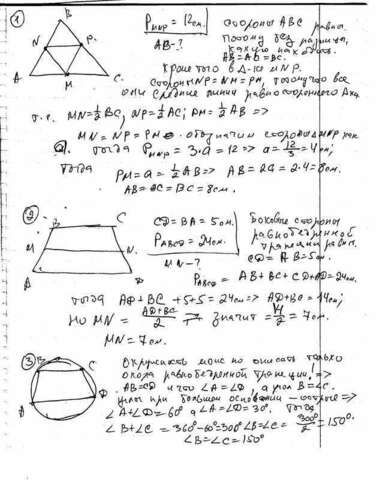 ①
B
N
P
A
M
C
P_MNP = 12 см.
AB - ?
Стороны ABC равны.
Поэтому без разницы,
какую находить.
AB = AC = BC.
Кроме того в Δ-ке MNP
стороны NP = NM = PM, потому что все
они средние линии равностороннего Δ-ка
т.е. MN = ½ BC, NP = ½ AC; PM = ½ AB =>
MN = NP = PM - обозначим стороны ΔMNP как
a. Тогда P_MNP = 3·a = 12 => a = 12/3 = 4 см;
Тогда PM = a = ½ AB => AB = 2a = 2·4 = 8 см.
AB = AC = BC = 8 см.
②
B
C
M
N
A
D
CD = BA = 5 см.
P_ABCD = 24 см.
MN - ?
Боковые стороны
равнобедренной
трапеции равны.
CD = AB = 5 см.
P_ABCD = AB + BC + CD + AD = 24 см.
Тогда AD + BC + 5 + 5 = 24 см => AD + BC = 14 см;
Но MN = (AD + BC)/2 => значит = 14/2 = 7 см.
MN = 7 см.
③
B
C
A
D
Окружность можно описать только
около равнобедренной трапеции! =>
AB = CD и что ∠A = ∠D, а угол B = ∠C.
углы при большем основании - острые =>
∠A + ∠D = 60° а ∠A = ∠D = 30°. Тогда
∠B + ∠C = 360° - 60° = 300° ∠B = ∠C = 300°/2 = 150°
∠B = ∠C = 150°